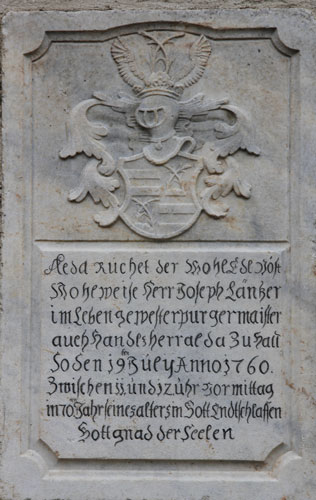 Aeda Ruchet der Wohl Edl Vöst
Wohlweise Herr Joseph Läntzer
im Leben gewester burgermaister
auch Handelsherr alda Zu Hall
so den 19th July Anno 1760.
Zwischen 11 und 12 uhr Vormittag
im 70 Jahr seines alters in Gott Endtschlaffen
Gott gnad der Seelen